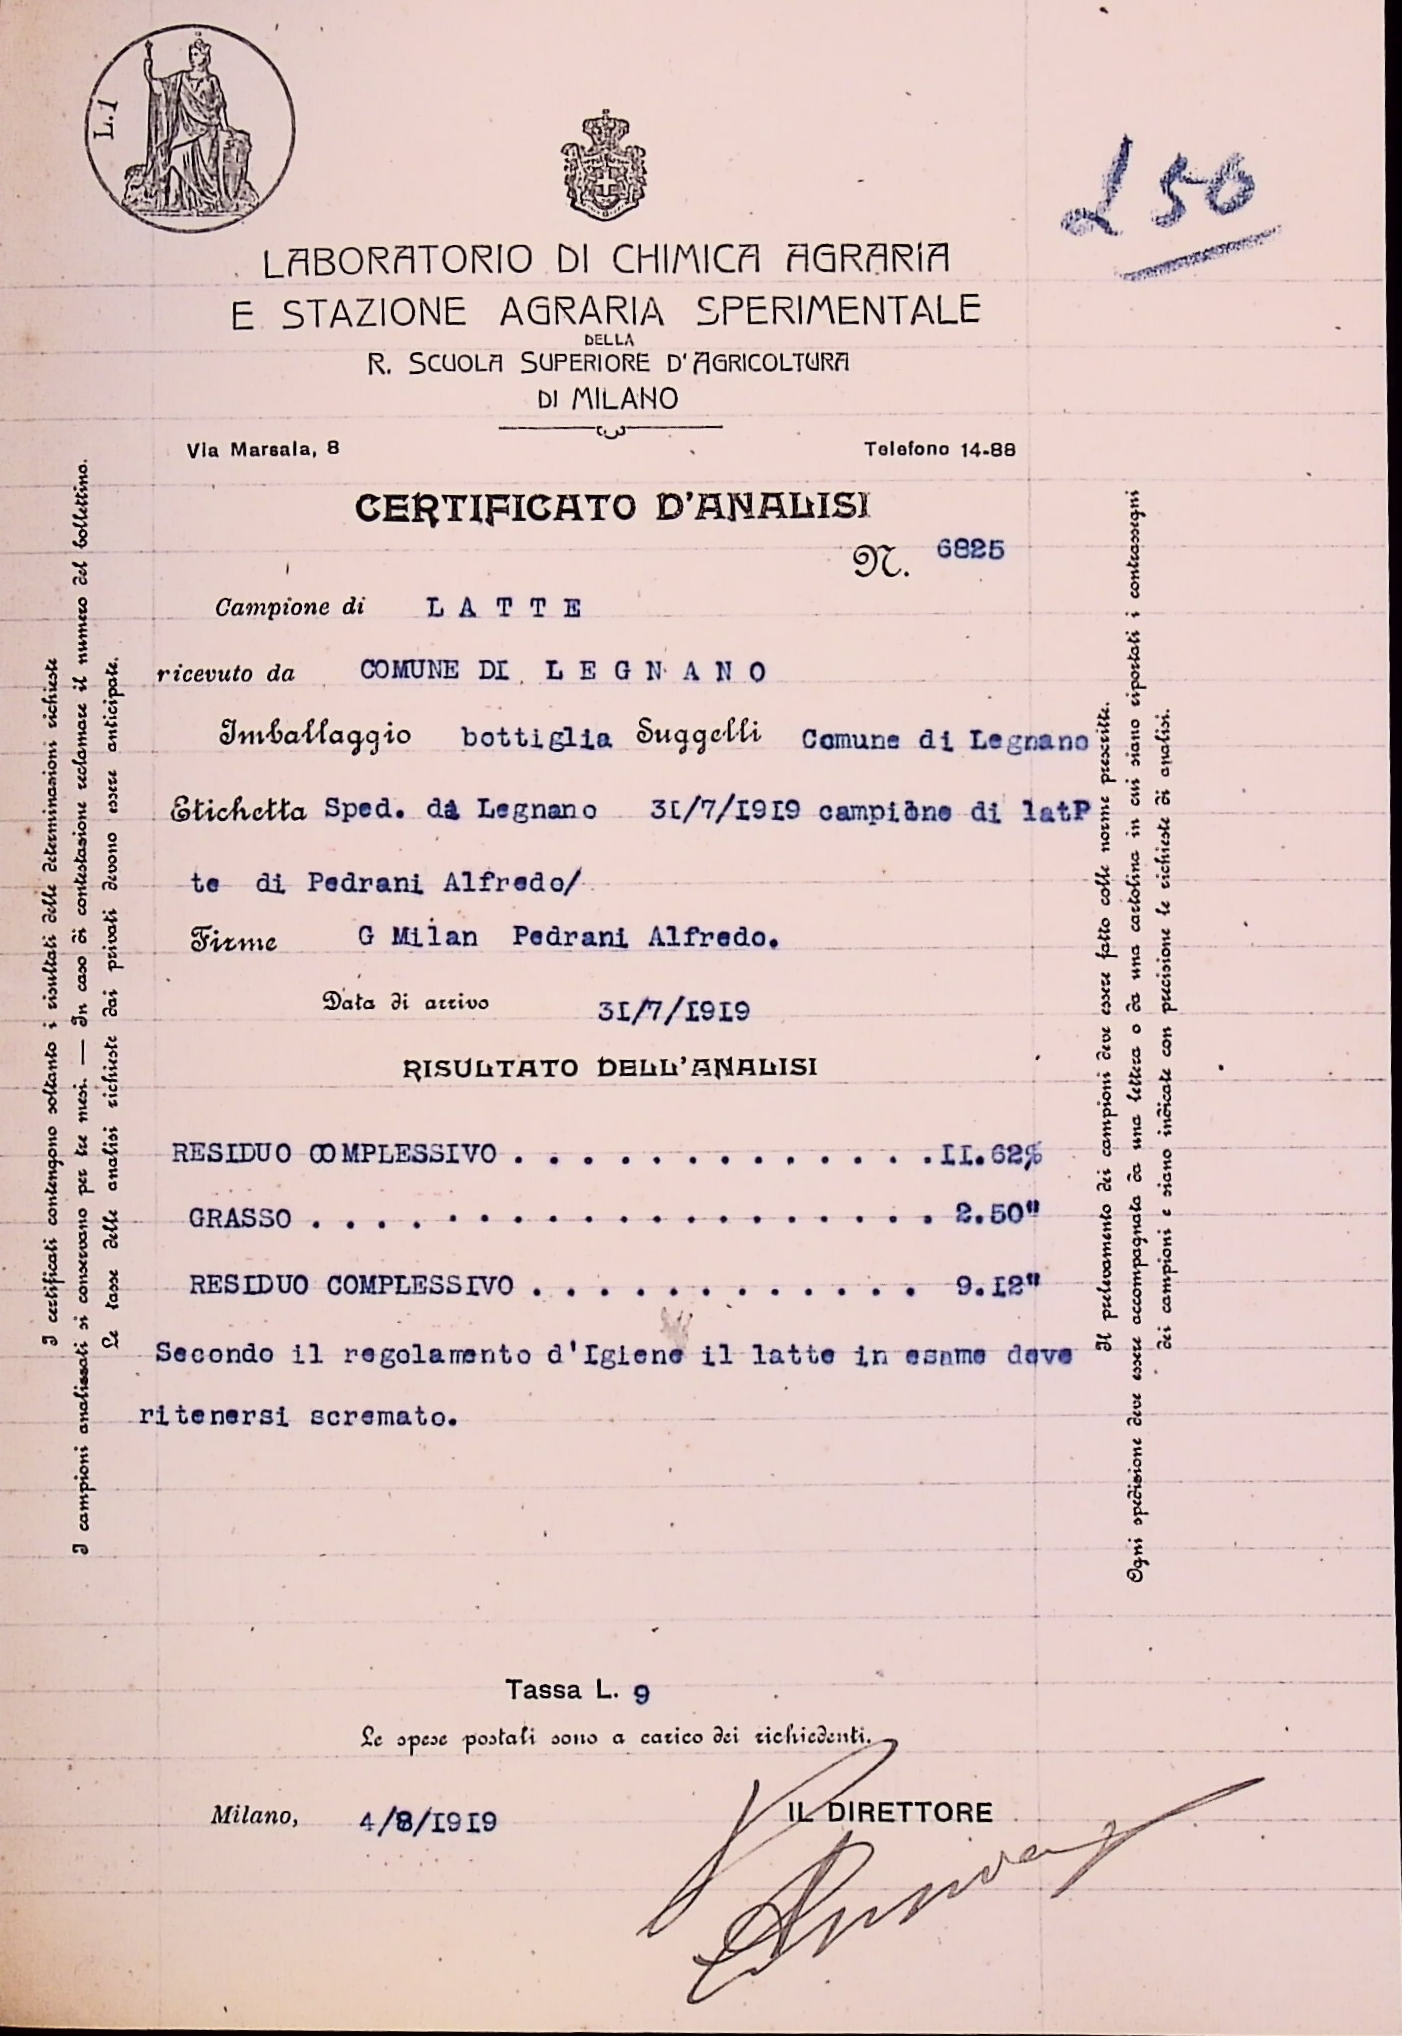 L.1
£ 50
LABORATORIO DI CHIMICA AGRARIA
E STAZIONE AGRARIA SPERIMENTALE
DELLA
R. SCUOLA SUPERIORE D'AGRICOLTURA
DI MILANO
Via Marsala, 8 Telefono 14-88
CERTIFICATO D'ANALISI
N. 6825
Campione di LATTE
ricevuto da COMUNE DI LEGNANO
Imballaggio bottiglia Suggelli Comune di Legnano
Etichetta Sped. da Legnano 31/7/1919 campione di latP
te di Pedrani Alfredo/
Firme G Milan Pedrani Alfredo.
Data di arrivo 31/7/1919
RISULTATO DELL'ANALISI
RESIDUO COMPLESSIVO . . . . . . . . . . . . . . . 11.62%
GRASSO . . . . . . . . . . . . . . . . . . . 2.50"
RESIDUO COMPLESSIVO . . . . . . . . . . . . . 9.12"
Secondo il regolamento d'Igiene il latte in esame deve
ritenersi scremato.
Tassa L. 9
Le spese postali sono a carico dei richiedenti.
Milano, 4/8/1919 IL DIRETTORE
I certificati contengono soltanto i risultati delle determinazioni richieste
I campioni analizzati si conservano per tre mesi. — In caso di contestazione reclamare il numero del bollettino.
Le tasse delle analisi richieste dai privati devono essere anticipate.
Il prelevamento dei campioni deve essere fatto colle norme prescritte.
Ogni spedizione deve essere accompagnata da una lettera o da una cartolina in cui siano riportati i contrassegni
dei campioni e siano indicate con precisione le richieste di analisi.